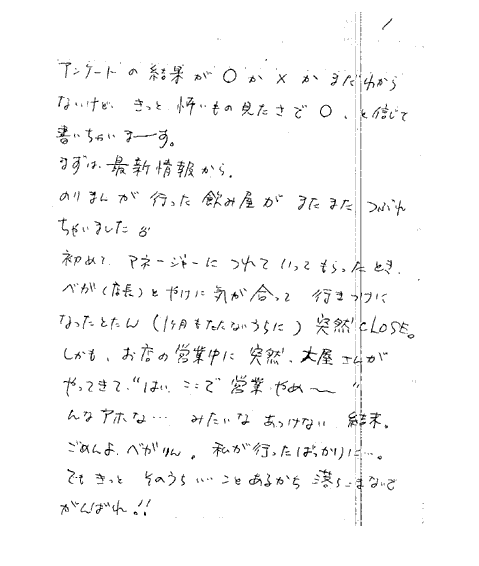 1
アンケートの結果が○か×かまだわから
ないけど、きっと怖いもの見たさで○、と信じて
書いちゃいまーす。
まずは最新情報から。
のりまんが行った飲み屋がまたまたつぶれ
ちゃいました
初めて、マネージャーにつれていってもらったとき、
べが(店長)とやけに気が合って行きつけに
なったとたん(1ヶ月もたたないうちに)突然CLOSE。
しかも、お店の営業中に突然、大屋さんが
やってきて、“はい、ここで営業やめ〜”
んなアホな…みたいなあっけない結末。
ごめんよ、べがりん。私が行ったばっかりに…。
でもきっとそのうちいいことあるから落ちこまないで
がんばれ!!